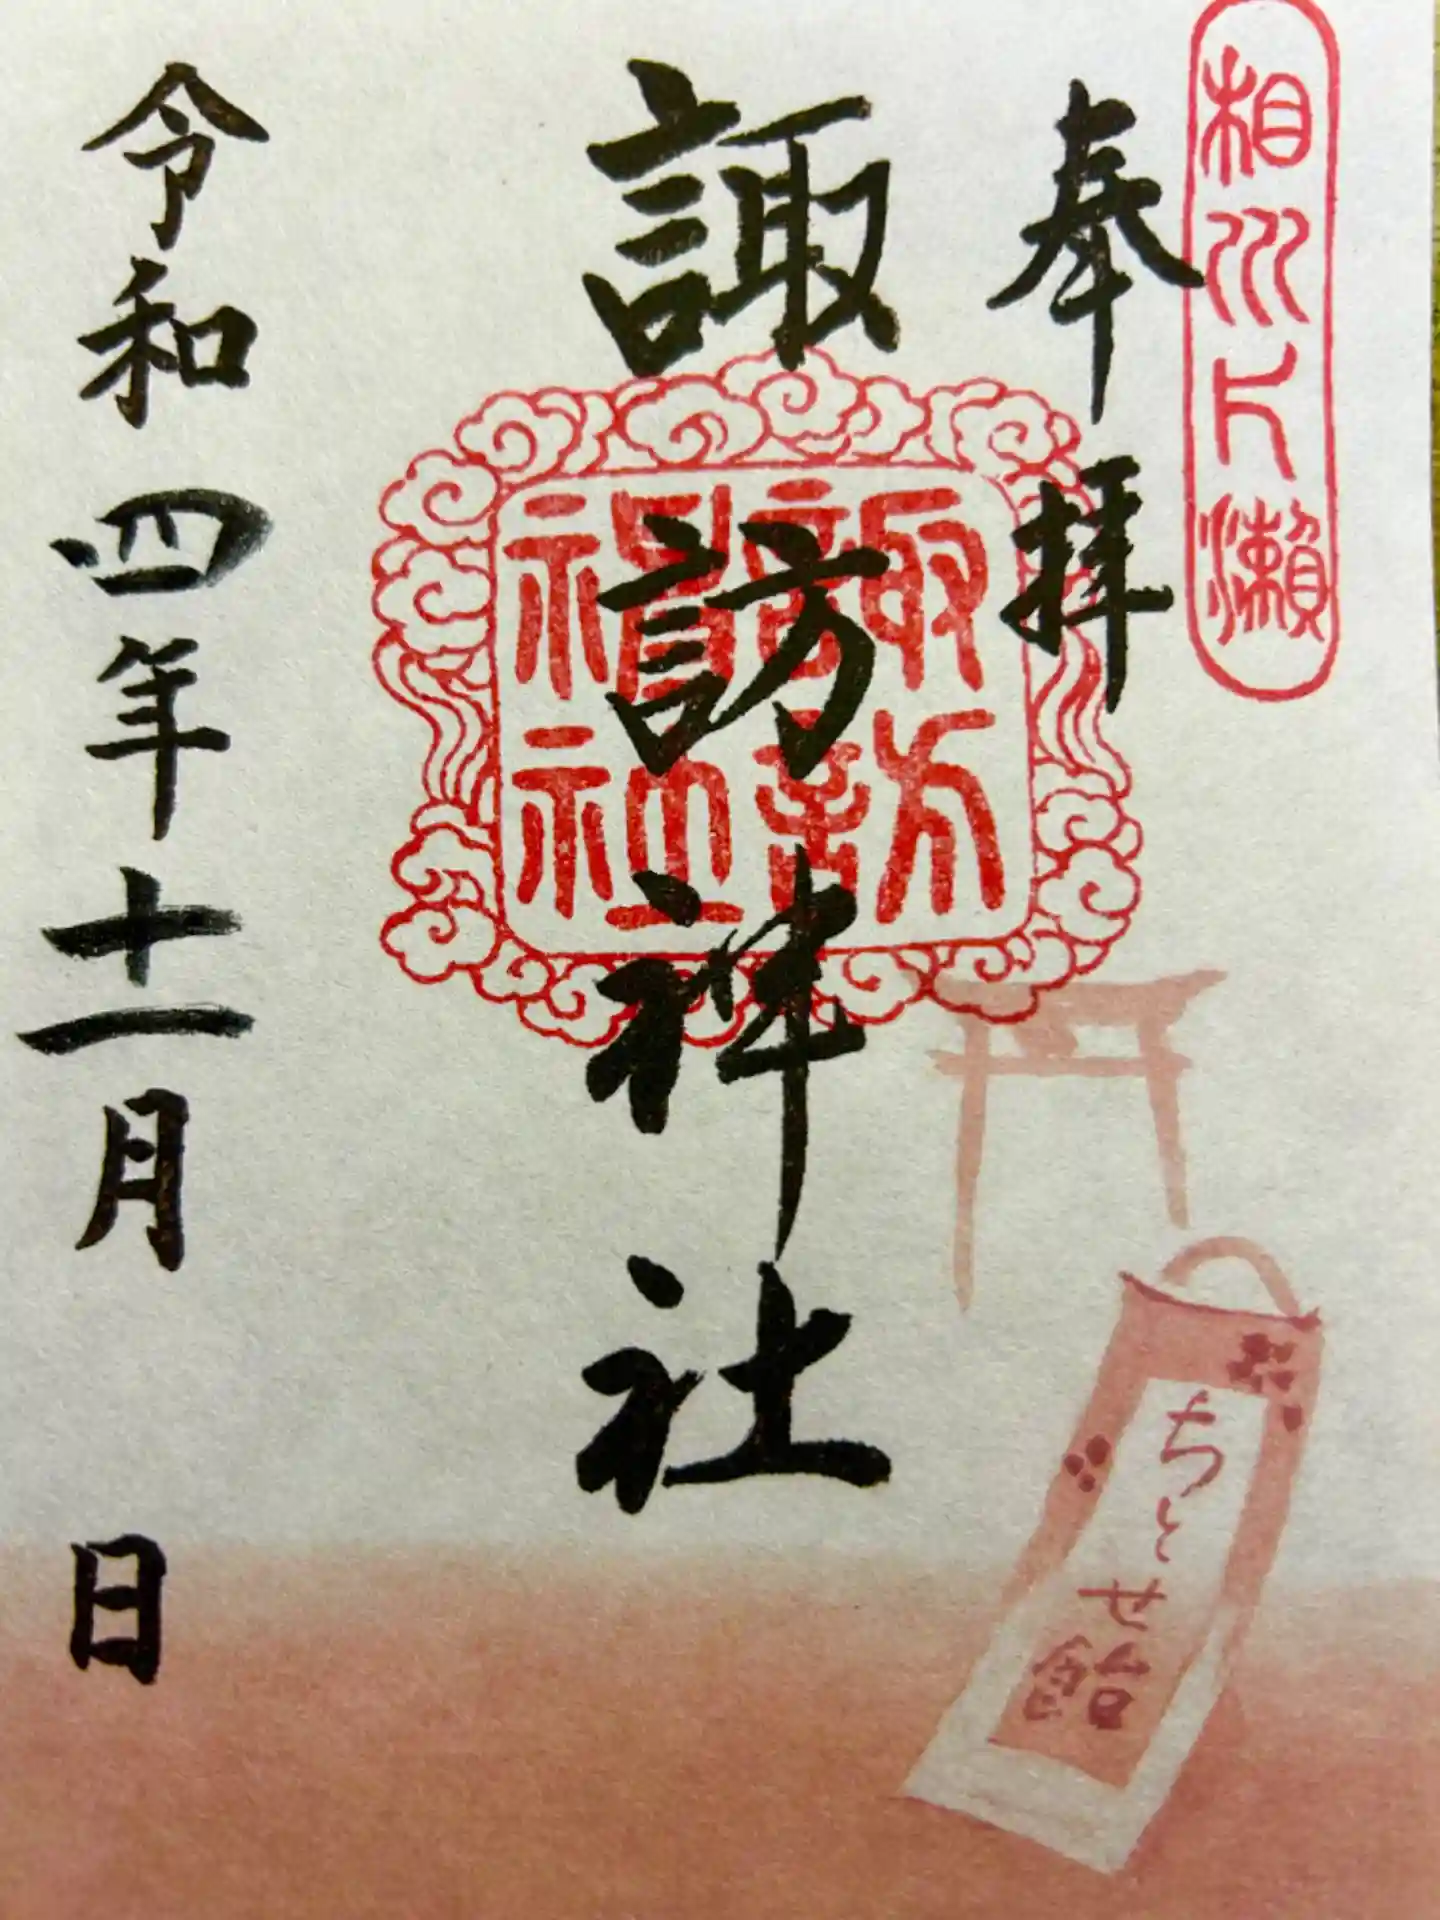 相州片瀬
奉拝
諏訪神社
諏訪
神社
令和四年十一月 日
ちとせ飴